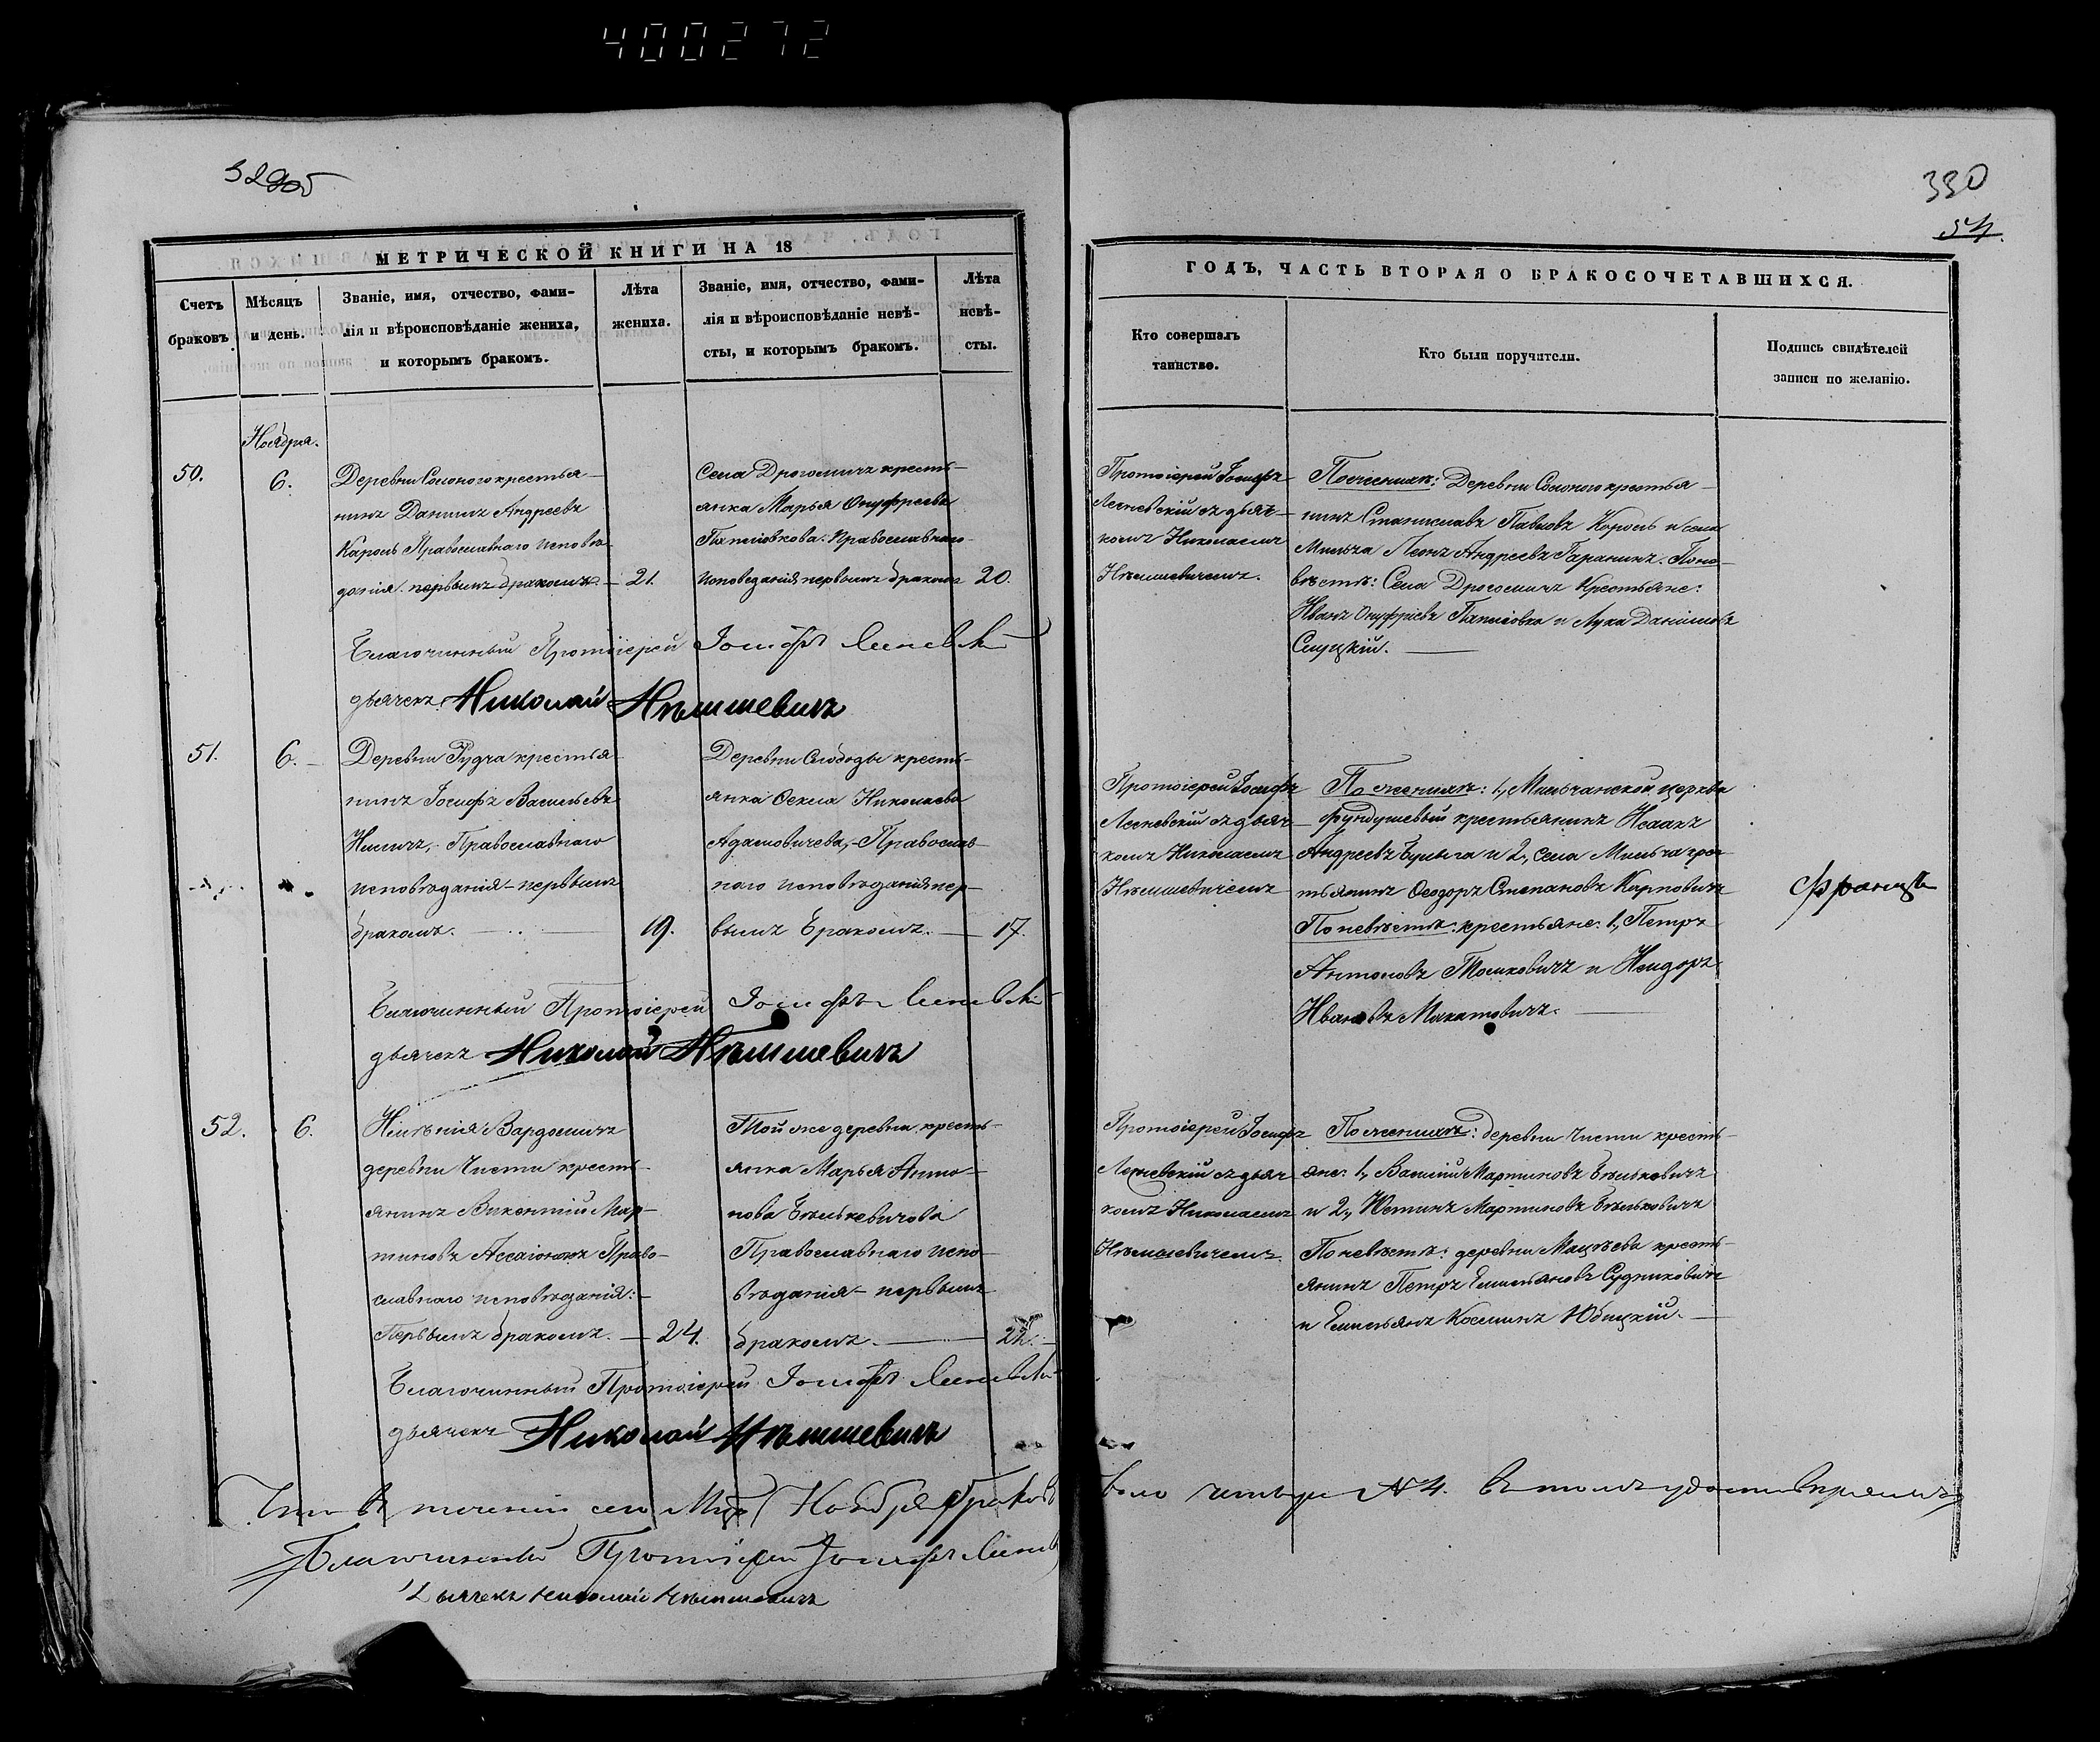 4000272
330
54.
МЕТРИЧЕСКОЙ КНИГИ НА 18
Счетъ браковъ
Мѣсяцъ и день.
Званіе, имя, отчество, фами-
лія и вѣроисповѣданіе жениха,
и которымъ бракомъ.
Лѣта
жениха.
Званіе, имя, отчество, фами-
лія и вѣроисповѣданіе невѣ-
сты, и которымъ бракомъ.
Лѣта
невѣ-
сты.
ГОДЪ, ЧАСТЬ ВТОРАЯ О БРАКОСОЧЕТАВШИХСЯ.
Кто совершалъ
таинство.
Кто были поручители.
Подпись свидѣтелей
записи по желанію.
Ноября.
50.
6.
Деревни крестья-
нинъ Даніилъ Андреевъ
Король Православнаго исповѣ-
данія. первымъ бракомъ.
21.
Села Дрогомичъ кресть-
янка Марья Онуфріева
Православнаго
исповеданія первымъ бракомъ
20.
Протоіерей Іосифъ
Лисневскій съ дьяч-
комъ Николаемъ
Нѣмшевичемъ.
По женихѣ: Деревни крестья-
нинъ Станиславъ Павловъ Король и села
Мильча Леонъ Андреевъ Таранинъ. По не-
вѣстѣ: Села Дрогомичъ Крестьяне:
Иванъ Онуфріевъ и Лука Даниловъ
Слуцкій.
Благочинный Протоіерей Іосифъ
дьячекъ Николай Нѣмшевичъ
51.
6.
Деревни Рудча крестья-
нинъ Іосифъ Васильевъ
Православнаго
исповѣданія первымъ
бракомъ.
19.
Деревни Слободы кресть-
янка Ѳекла Николаева
Адамовичева, Православ-
наго исповѣданія пер-
вымъ бракомъ.
17.
Протоіерей Іосифъ
Лисневскій съ дьяч-
комъ Николаемъ
Нѣмшевичемъ
По женихѣ: 1, Мильчанской церкви
фундушевый крестьянинъ Исаакъ
Андреевъ и 2, села Мильча крес-
тьянинъ Ѳеодоръ Степановъ Карповичъ
По невѣстѣ: крестьяне: 1, Петръ
Антоновъ и Исидоръ
Ивановъ
Благочинный Протоіерей Іосифъ
дьячекъ Николай Нѣмшевичъ
52.
6.
Имѣнія Вардомичъ
деревни Чисти кресть-
янинъ Викентій Мар-
тиновъ Право-
славнаго исповѣданія:
Первымъ бракомъ.
24.
Той же деревни кресть-
янка Марья Анто-
нова Бѣлькевичова
Православнаго испо-
вѣданія первымъ
бракомъ.
Протоіерей Іосифъ
Лисневскій съ дьяч-
комъ Николаемъ
Нѣмшевичемъ.
По женихѣ: деревни Чисти кресть-
яне: 1, Василій Мартиновъ Бѣльковичъ
и 2, Юстинъ Мартиновъ Бѣльковичъ
По невѣстѣ: деревни кресть-
янинъ Петръ Емельяновъ Судниковичъ
и Емельянъ Косминъ
Благочинный Протоіерей Іосифъ
дьячекъ Николай Нѣмшевичъ
Что въ теченіи сего Ноября браковъ было четыре № 4. въ томъ удостовѣряемъ
Благочинный Протоіерей Іосифъ
Дьячекъ Николай Нѣмшевичъ